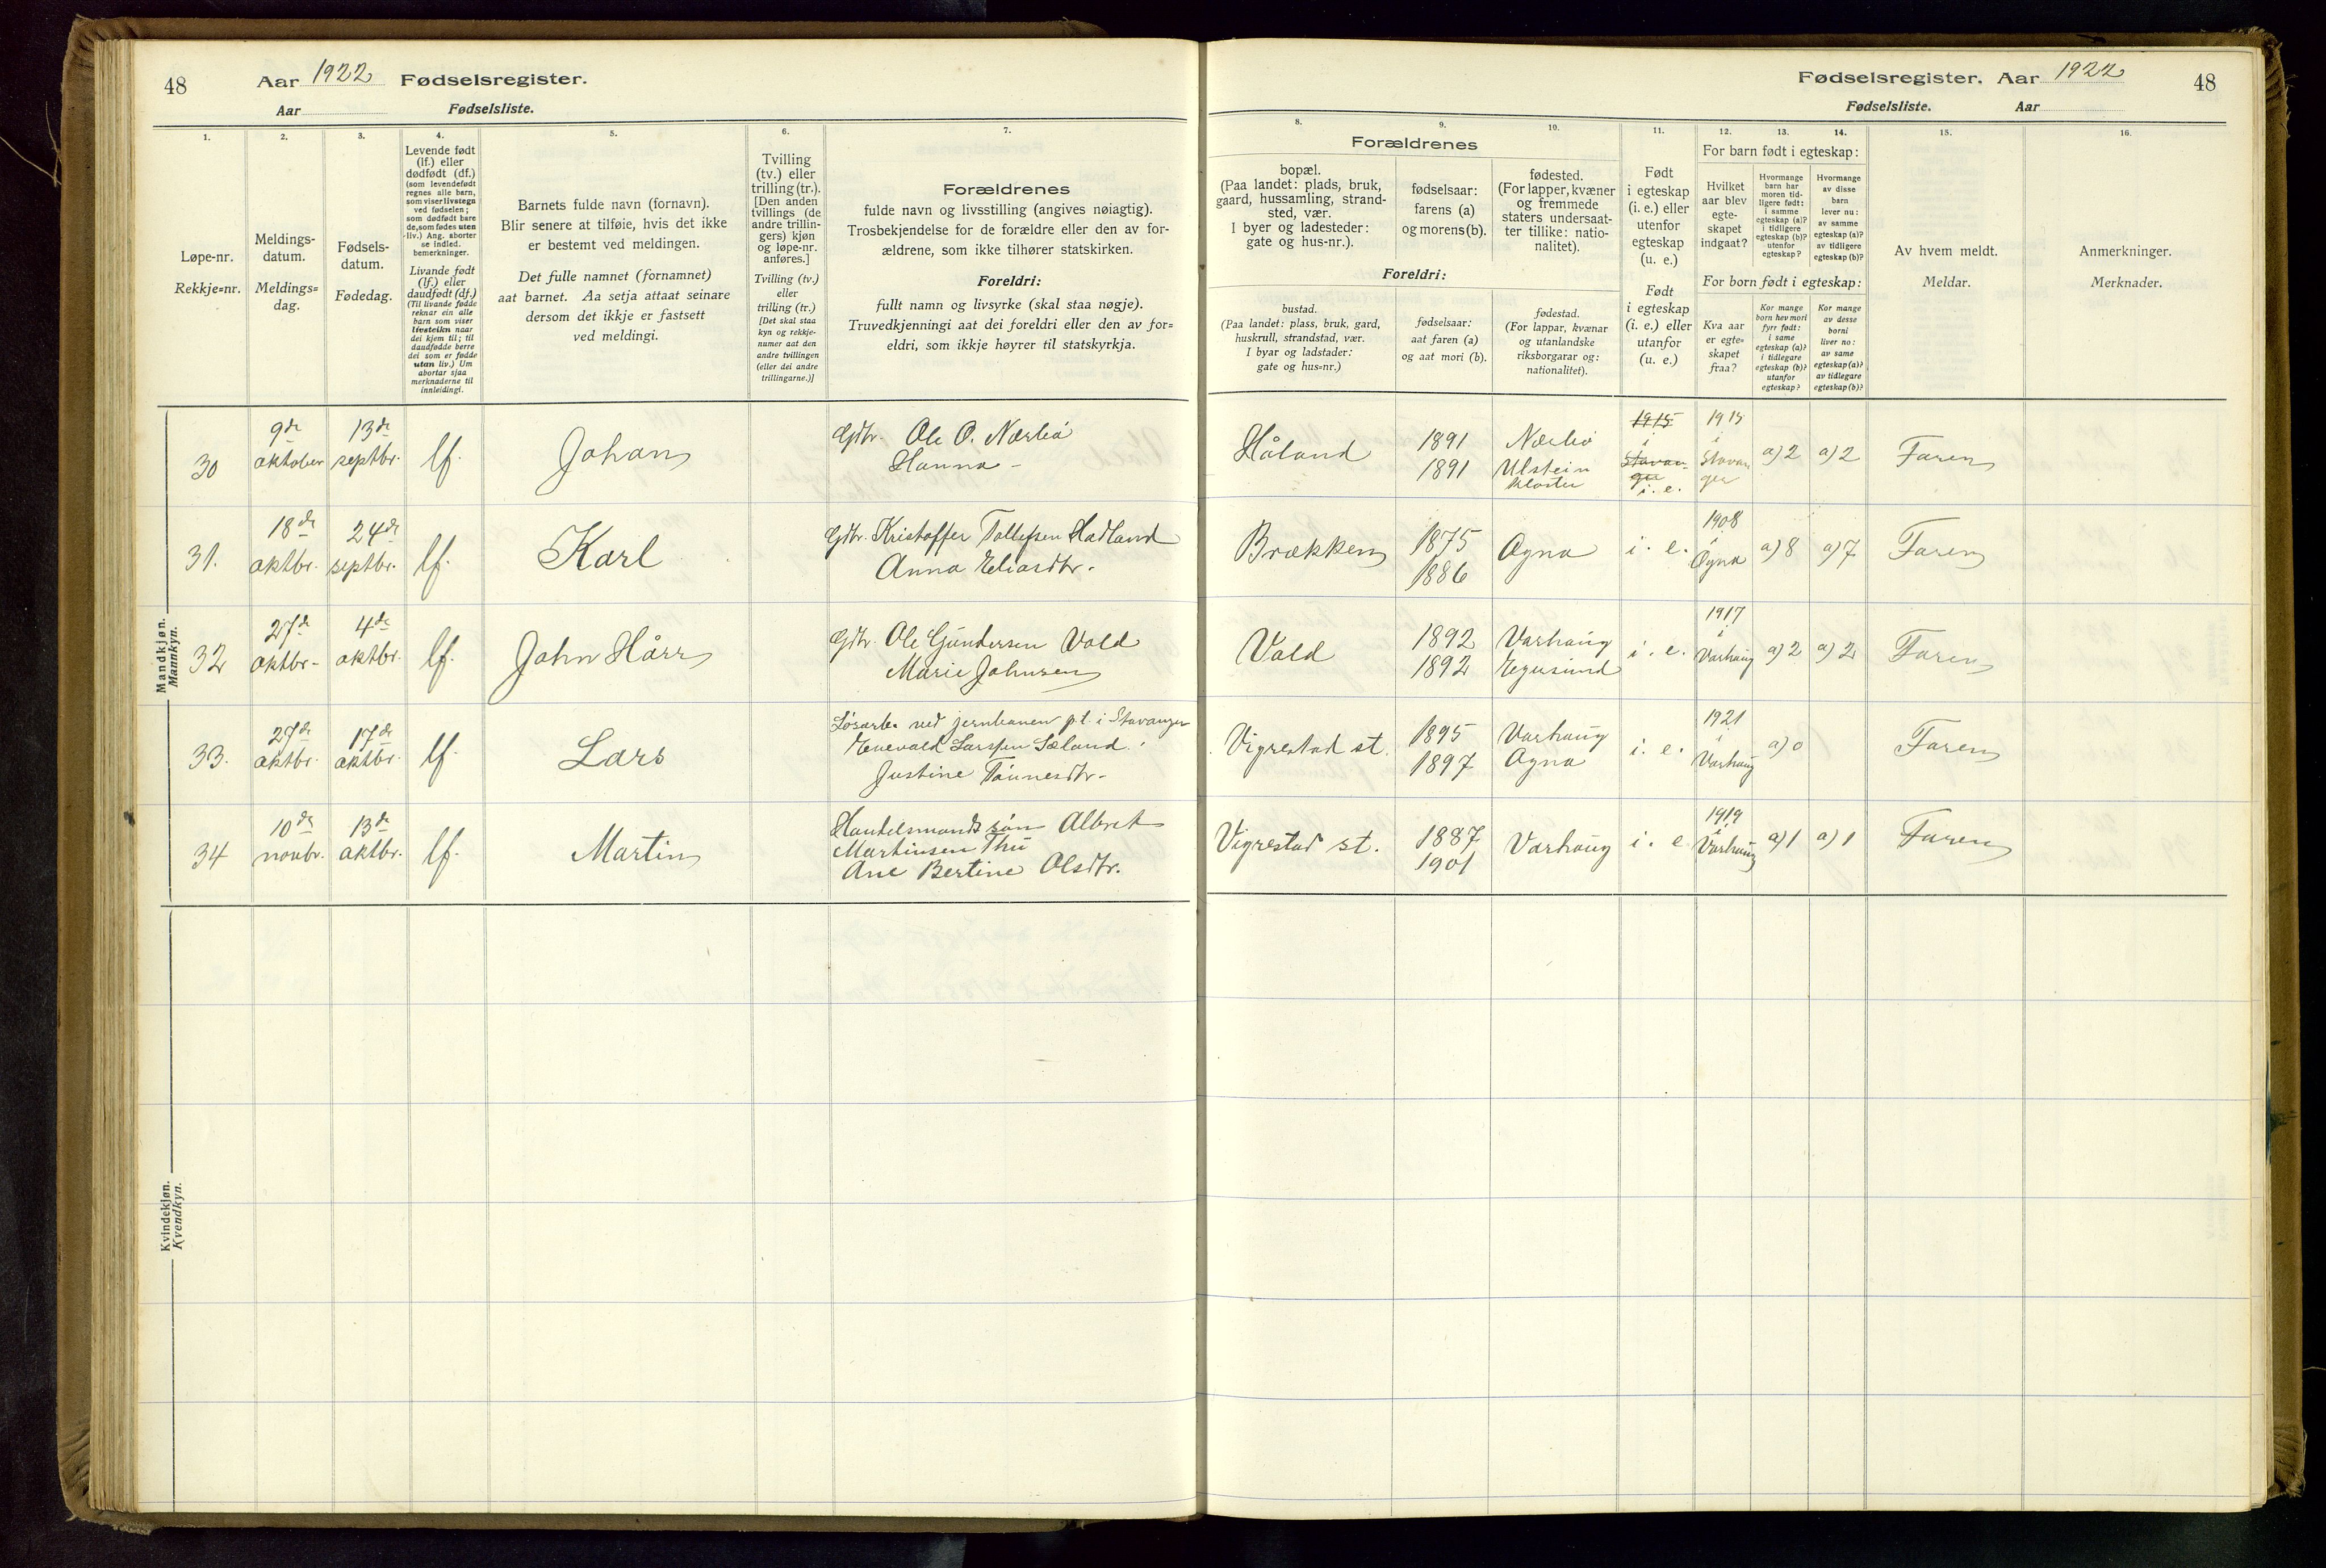 48
Aar 1922 Fødselsregister.
Aar Fødselsliste.
1.
2.
3.
4.
5.
6.
7.
Løpe-nr.
Rekkje=nr.
Meldings-
datum.
Meldings=
dag.
Fødsels-
datum.
Fødedag.
Levende født
(lf.) eller
dødfødt (df.)
(som levendefødt
regnes alle barn,
som viser livstegn
ved fødselen;
som dødfødt bare
de, som fødes uten
liv.) Ang. aborter
se indled.
bemerkninger.
Livande født
(lf.) eller
daudfødt (df.)
(Til livande fødde
reknar ein alle
barn som viser
livsteikn naar
dei kjem til; til
daudfødde berre
dei som er fødde
utan liv.) Um
abortar sjaa
merknaderne til
innleidingi.
Barnets fulde navn (fornavn).
Blir senere at tilføie, hvis det ikke
er bestemt ved meldingen.
Det fulle namnet (fornamnet)
aat barnet. Aa setja attaat seinare
dersom det ikkje er fastsett
ved meldingi.
Tvilling
(tv.) eller
trilling (tr.).
[Den anden
tvillings (de
andre trillin-
gers) kjøn
og løpe-nr.
anføres.]
Tvilling (tv.)
eller
trilling (tr.)
[Det skal staa
kyn og rekkje-
numer aat den
andre tvillingen
(eller dei andre
trillingarne.)]
Forældrenes
fulde navn og livsstilling (angives nøiagtig).
Trosbekjendelse for de forældre eller den av for-
ældrene, som ikke tilhører statskirken.
Foreldri:
fullt namn og livsyrke (skal staa nøgje).
Truvedkjenningi aat dei foreldri eller den av for=
eldri, som ikkje høyrer til statskyrkja.
Mandkjøn.
Mannkyn.
30
9de oktober
13de septbr.
lf.
Johan
Gdbr. Ole O. Nærbø
Hanna -
31.
18de oktbr.
24de septbr.
lf.
Karl
Gdbr. Kristoffer Tollefsen Hadland
Anna Eliasdtr.
32
27de oktbr.
4de oktbr.
lf.
John Hårr
Gdbr. Ole Gundersen Vold
Marie Johnsen
33.
27de oktbr.
17de oktbr.
lf.
Lars
Løsarb. ved jernbanen p.t. i Stavanger
Enevald Larssen Sæland.
Justine Tønnesdtr.
34
10de novbr.
13de oktbr.
lf.
Martin
Handelsmands søn Albret
Martinsen Thu
Ane Bertine Olsdtr.
Kvindekjøn.
Kvendkyn.
Fødselsregister. Aar 1922
48
Fødselsliste. Aar
8.
9.
10.
11.
12.
13.
14.
15.
16.
Forældrenes
bopæl.
(Paa landet: plads, bruk,
gaard, hussamling, strand-
sted, vær.
I byer og ladesteder:
gate og hus-nr.).
fødselsaar:
farens (a)
og morens (b).
fødested.
(For lapper, kvæner
og fremmede
staters undersaat-
ter tillike: natio-
nalitet).
Foreldri:
bustad.
(Paa landet: plass, bruk, gard,
huskrull, strandstad, vær.
I byar og ladstader:
gate og hus=nr.)
fødselsaar:
aat faren (a)
og aat mori (b).
fødestad.
(For lappar, kvænar
og utanlandske
riksborgarar og:
nationalitet).
Født
i egteskap
(i. e.) eller
utenfor
egteskap
(u. e.)
Født
i egteskap
(i. e.) eller
utanfor
(u. e.)
For barn født i egteskap:
Hvilket
aar blev
egte-
skapet
indgaat?
Hvormange
barn har
moren tid-
ligere født:
i samme
egteskap (a)?
i tidligere
egteskap (b)?
utenfor
egteskap?
Hvormange
av disse
barn
lever nu:
av samme
egteskap (a)?
av tidligere
egteskap (b)?
For born født i egteskap:
Kva aar
er egte=
skapet
fraa?
Kor mange
born hev mori
fyrr født:
i same
egteskap (a)?
i tidlegare
egteskap (b)?
utanfor
egteskap?
Kor mange
av desse
borni
liver no:
av same
egteskap (a)?
av tidlegare
egteskap (b)?
Av hvem meldt.
Meldar.
Anmerkninger.
Merknader.
Håland
1891
1891
Nærbø
Ulstein
kloster
1915 i Stavan-
ger
i. e.
1915 i Stavan
ger
a) 2
a) 2
Faren
Brækken
1875
1886
Ogna
i. e.
1908 i Ogna
a) 8
a) 7
Faren
Vold
1892
1892
Varhaug
Egersund
i. e.
1917 i Varhaug
a) 2
a) 2
Faren
Vigrestad st.
1895
1897
Varhaug
Ogna
i. e.
1921 i Varhaug
a) 0
Faren
Vigrestad st.
1887
1901
Varhaug
i. e
1919 i Varhaug
a) 1
a) 1
Faren